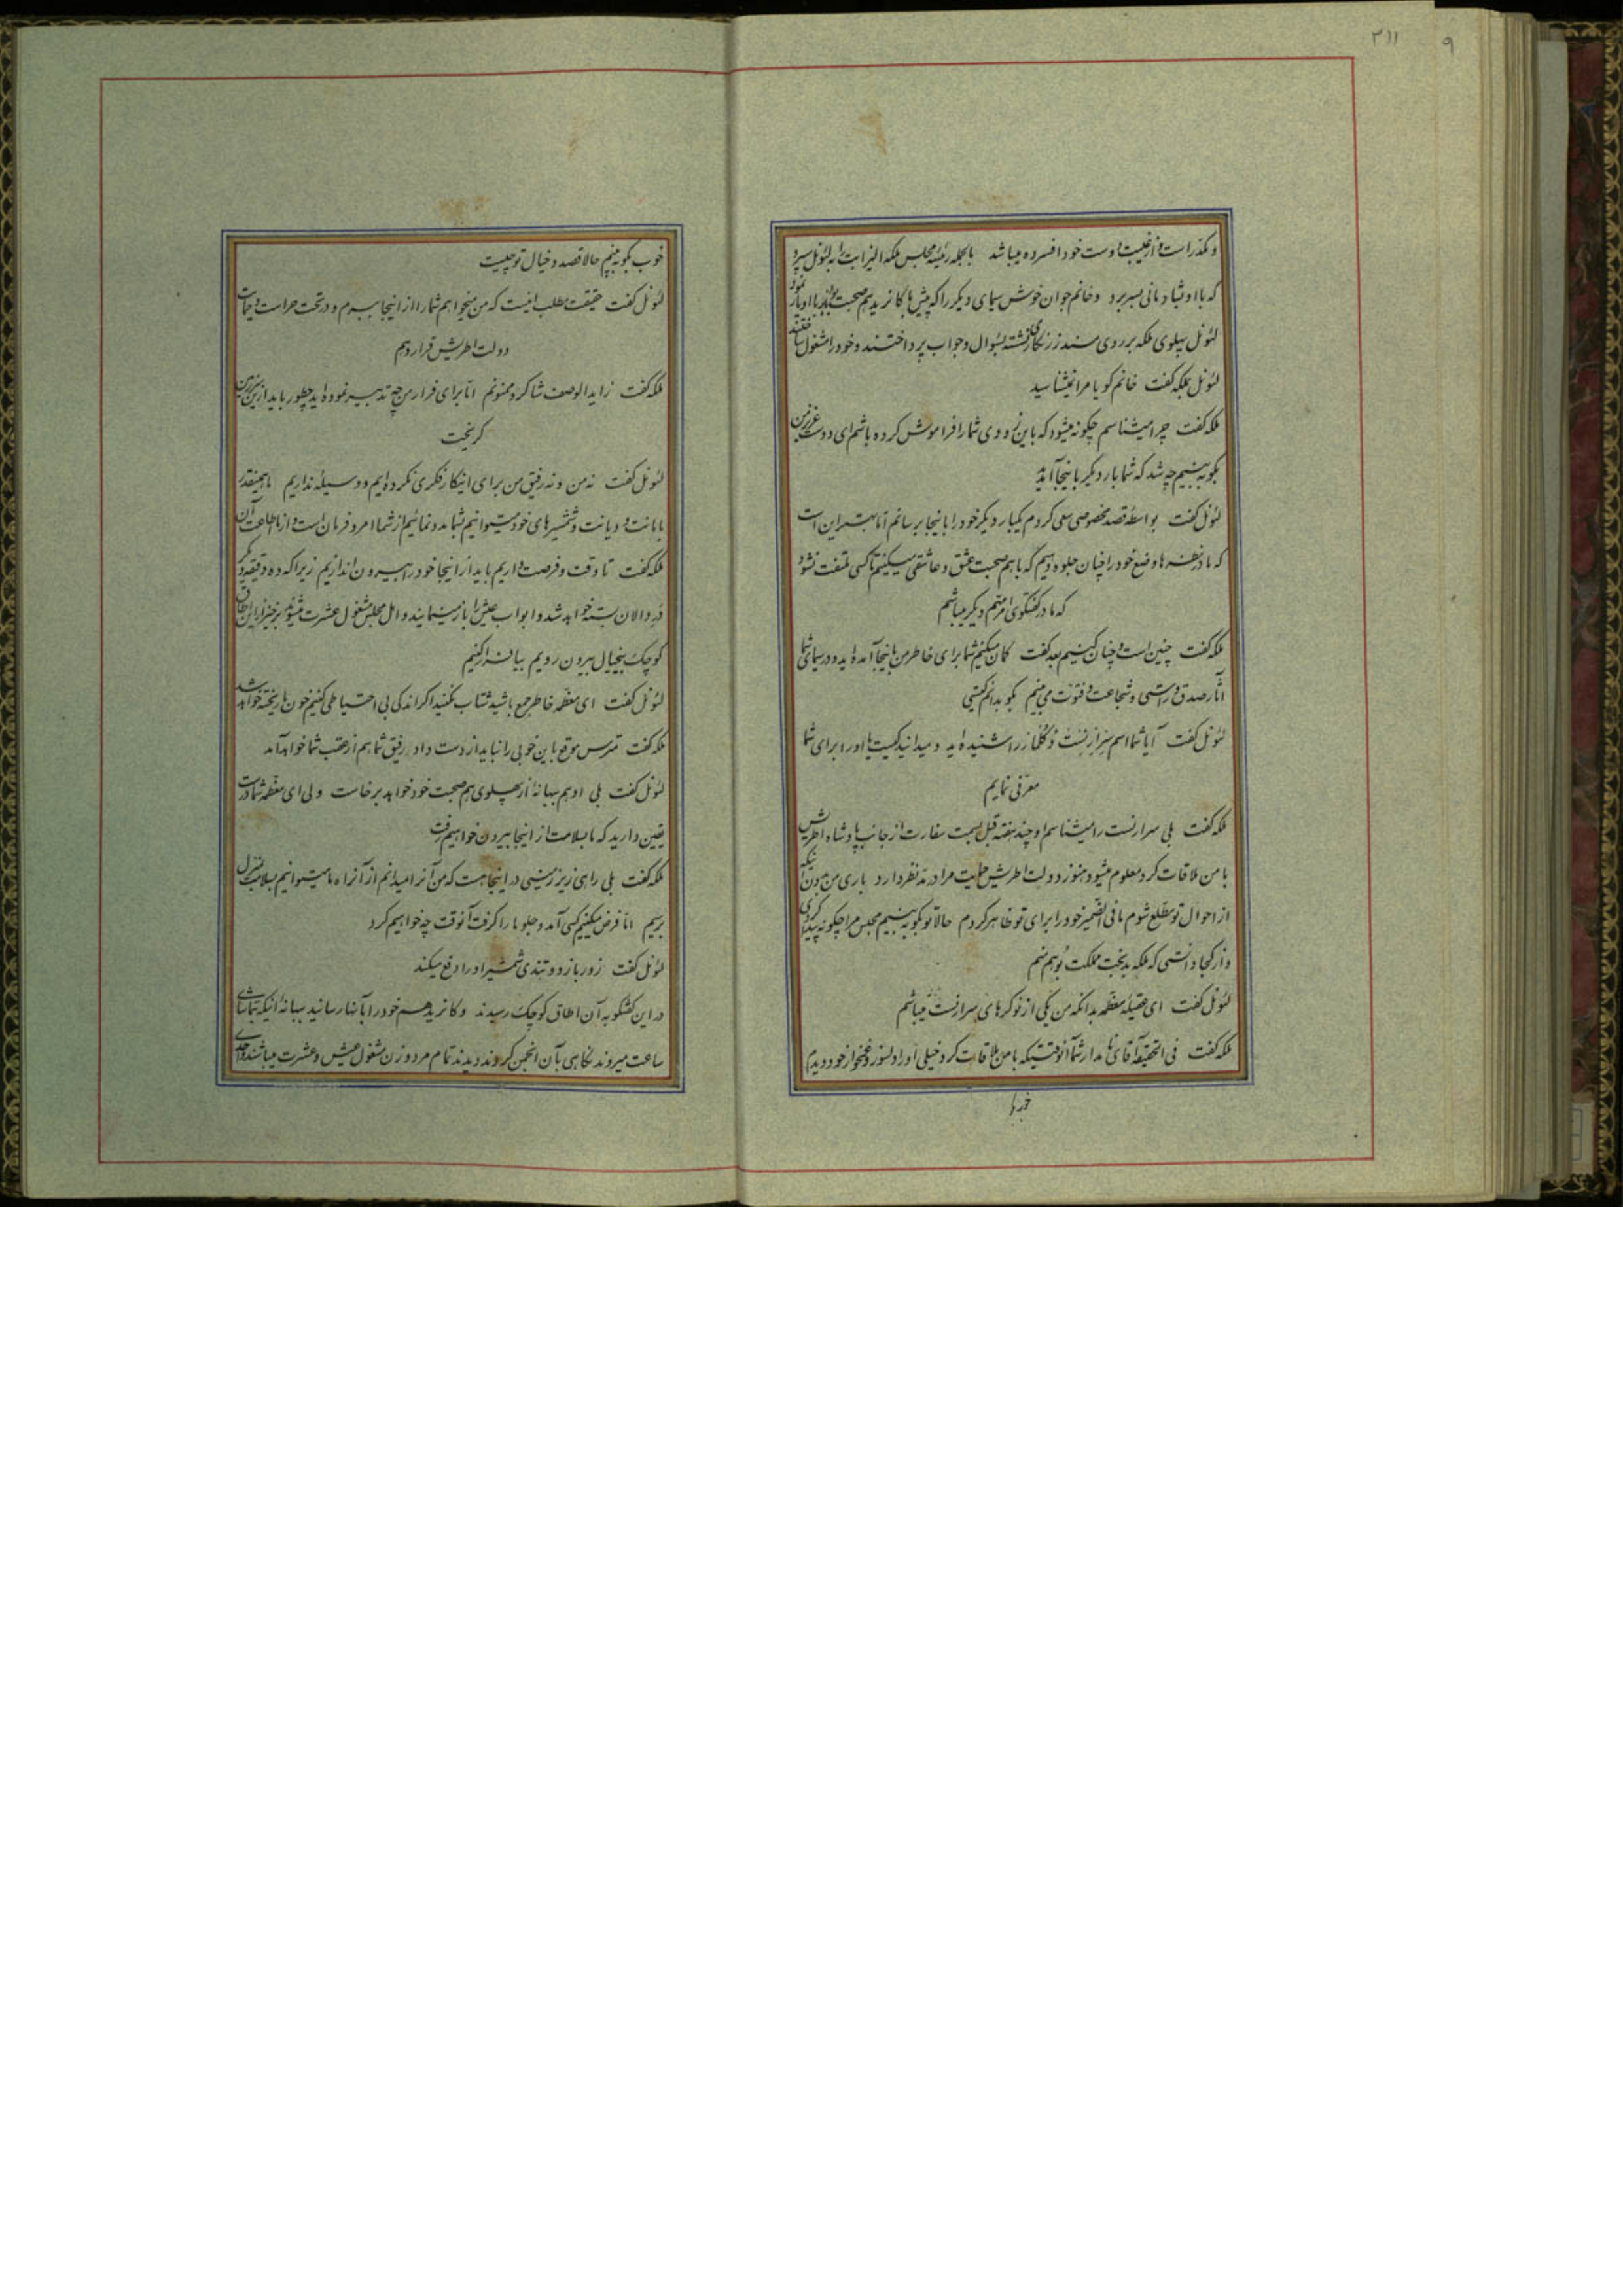 ۲۱۱ ۹
و مکدر است و از غیبت دوست خود افسرده میباشد بالجمله رئیسه مجلس ملکه الیزابت را به لئونل سپرد
که با او بشادمانی بسر برد و خانم جوان خوش سیمای دیگر را که پیش با کانریدیم صحبت بود با او یار نمود
لئونل پهلوی ملکه بر روی مسند زرنگاری نشسته بسؤال و جواب پرداختند و خود را مشغول ساختند
لئونل بملکه گفت خانم گویا مرا نمیشناسید
ملکه گفت چرا میشناسم چگونه میشود که باین زودی شما را فراموش کرده باشم ای دوست عزیز من
بگو به بینیم چه شد که شما بار دیگر باینجا آمدید
لئونل گفت بواسطه قصد مخصوصی سعی کردم یکبار دیگر خود را باینجا برسانم اما بهتر این است
که ما در نظرها وضع خود را چنان جلوه دهیم که با هم صحبت عشق و عاشقی میکنیم تا کسی ملتفت نشود
که ما در گفتگوی امر مهم دیگر میباشیم
ملکه گفت چنین است و چنان کنیم بعد گفت گمان میکنم شما برای خاطر من باینجا آمده اید و در سیمای شما
آثار صدق و راستی و شجاعت و فتوت می بینم بگو بدانم کیستی
لئونل گفت آیا شما اسم سرارنست دکلمار را شنیده اید و میدانید کیست یا او را برای شما
معرفی نمایم
ملکه گفت بلی سرارنست را میشناسم او چند هفته قبل بسمت سفارت از جانب پادشاه اطریش
با من ملاقات کرد معلوم میشود هنوز دولت اطریش حمایت مرا در مد نظر دارد باری من بدون آنکه
از احوال تو مطلع شوم مافی الضمیر خود را برای تو ظاهر کردم حالا تو بگو به بینیم مجلس مرا چگونه پیدا کردی
و از کجا دانستی که ملکه بدبخت مملکت بوهم منم
لئونل گفت ای عقیله معظمه بدانکه من یکی از نوکرهای سرارنست میباشم
ملکه گفت فی الحقیقه آقای نامدار شما آنوقتیکه با من ملاقات کرد خیلی او را دلسوز و غمخوار خود دیدم
خوب
خوب بگو به بینم حالا قصد و خیال تو چیست
لئونل گفت حقیقت مطلب اینست که من میخواهم شما را از اینجا ببرم و در تحت حراست و حمایت
دولت اطریش قرار دهم
ملکه گفت زاید الوصف شاکر و ممنونم اما برای فرار من چه تدبیر نموده اید چطور باید از این زیرزمین
گریخت
لئونل گفت نه من و نه رفیق من برای اینکار فکری نکرده ایم و وسیله نداریم ما همینقدر
با مانت و دیانت و شمشیرهای خود میتوانیم بشما مدد نمائیم از شما امر و فرمان است و از ما اطاعت آن
ملکه گفت تا وقت و فرصت داریم باید از اینجا خود را بیرون اندازیم زیرا که ده دقیقه دیگر
در دالان بسته خواهد شد و ابواب عیش را باز مینمایند و اهل مجلس مشغول عشرت میشوند برخیز از این اطاق
کوچک بیخیال بیرون رویم بیا فرار کنیم
لئونل گفت ای معظمه خاطر جمع باشید شتاب نکنید اگر اندکی بی احتیاطی کنیم خون ها ریخته خواهد شد
ملکه گفت مترس موقع باین خوبی را نباید از دست داد رفیق شما هم از عقب شما خواهد آمد
لئونل گفت بلی او هم ببهانه از پهلوی هم صحبت خود خواهد برخاست ولی ای معظمه شما درست
یقین دارید که ما بسلامت از اینجا بیرون خواهیم رفت
ملکه گفت بلی راهی زیرزمینی در اینجا هست که من آنرا میدانم از آنراه ما میتوانیم بسلامت بمنزل
برسیم اما فرض میکنیم کسی آمد و جلو ما را گرفت آنوقت چه خواهیم کرد
لئونل گفت زور بازو و تندی شمشیر او را دفع میکند
در این گفتگو به آن اطاق کوچک رسیدند و کانرید هم خود را بآنها رسانید ببهانه اینکه بتماشای
ساعت میروند نگاهی بآن انجمن کردند دیدند تمام مرد و زن مشغول عیش و عشرت میباشند واحدی